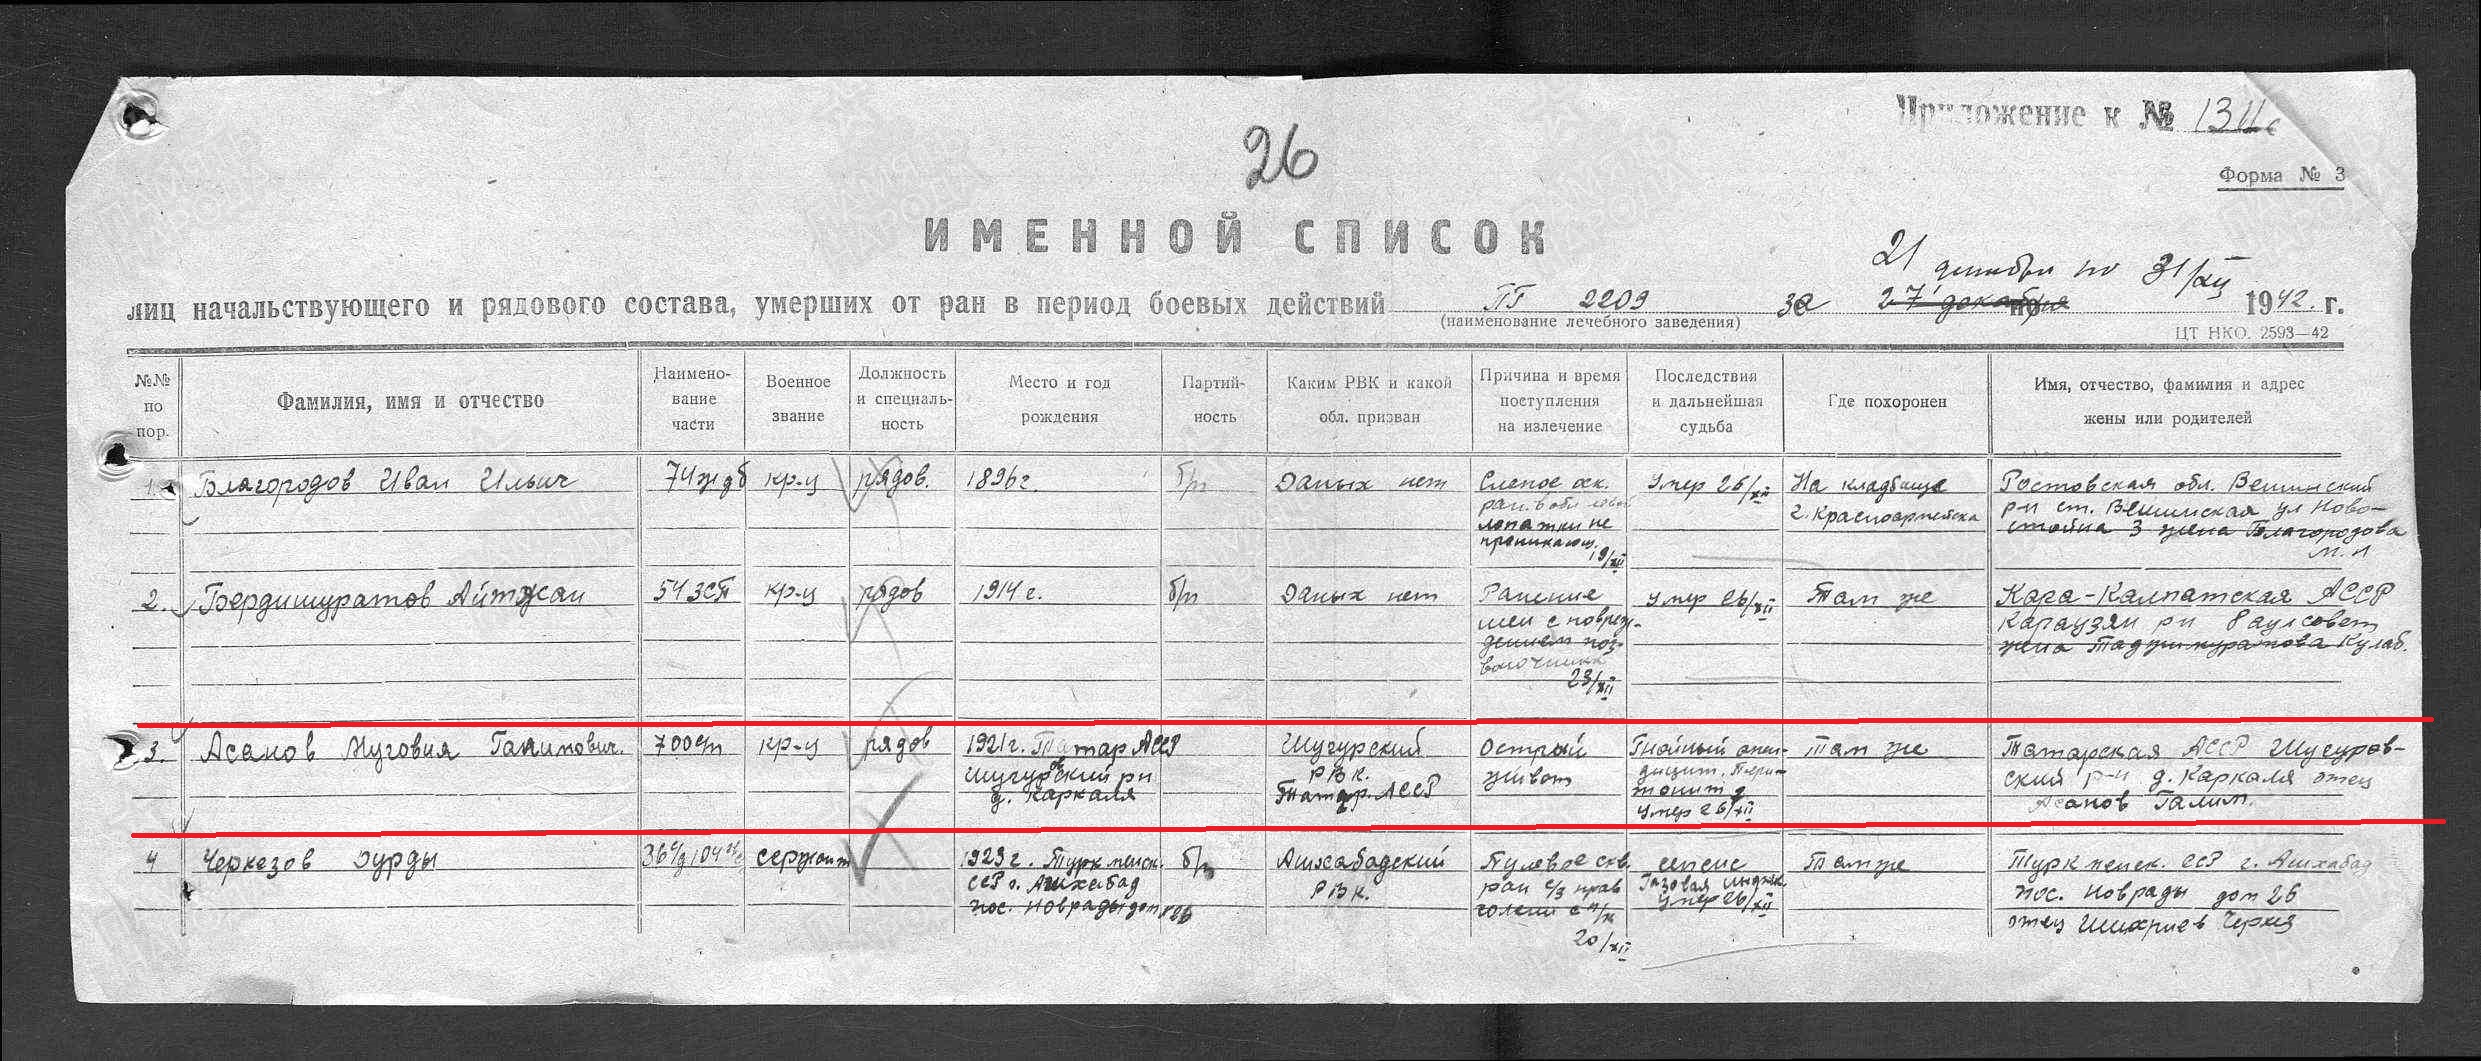 Приложение к №
26
Форма № 3
ИМЕННОЙ СПИСОК
21 декабря по 31/XII
лиц начальствующего и рядового состава, умерших от ран в период боевых действий ПГ 2209 за 27 декабря по 1942. г.
(наименование лечебного заведения)
ЦТ НКО. 2593—42
№№ по пор.
Фамилия, имя и отчество
Наименование части
Военное звание
Должность и специальность
Место и год рождения
Партийность
Каким РВК и какой обл. призван
Причина и время поступления на излечение
Последствия и дальнейшая судьба
Где похоронен
Имя, отчество, фамилия и адрес жены или родителей
1. Благородов Иван Ильич 74 кр-ц рядов. 1896 г. б/п Даных нет
Слепое оск.
ран. в обл
лопатки не
проникающ.
19/XII
Умер 26/XII
На кладбище
г. Красноармейска
Ростовская обл. Вешинский
р-н ст. Вешинская ул Ново-
3 жена Благородова
М. И
2. Бердимуратов Айтжан 54 ЗСП кр-ц рядов 1914 г. б/п Даных нет
Ранение
шеи с повреж-
дением поз-
воночника
23/XII
Умер 26/XII
Там же
Кара-Калпатская АССР
Караузян рн 8 аулсовет
жена Таджимуратова Кулаб.
3. Асанов Муговия Галипович. 700 кр-ц рядов
1921 г. Татар АССР
Шугуровский рн
д. Каркаля
Шугурский
РВК.
Татар. АССР
Острый
живот
Гнойный апен-
дицит. Пери-
тонит
Умер 26/XII
там же
Татарская АССР Шугуров-
ский р-н д. Каркаля отец
Асанов Галип.
4 Черкезов Дурды сержант
1923 г. Туркменск.
ССР г. Ашхабад
пос. Новрады дом 26
б/п
Ашхабадский
РВК.
Пулевое скв.
ран с/з прав
голени
20/XII
сепсис
Газовая
Умер 26/XII
Там же
Туркменск. ССР г. Ашхабад
пос. Новрады дом 26
отец Черкез